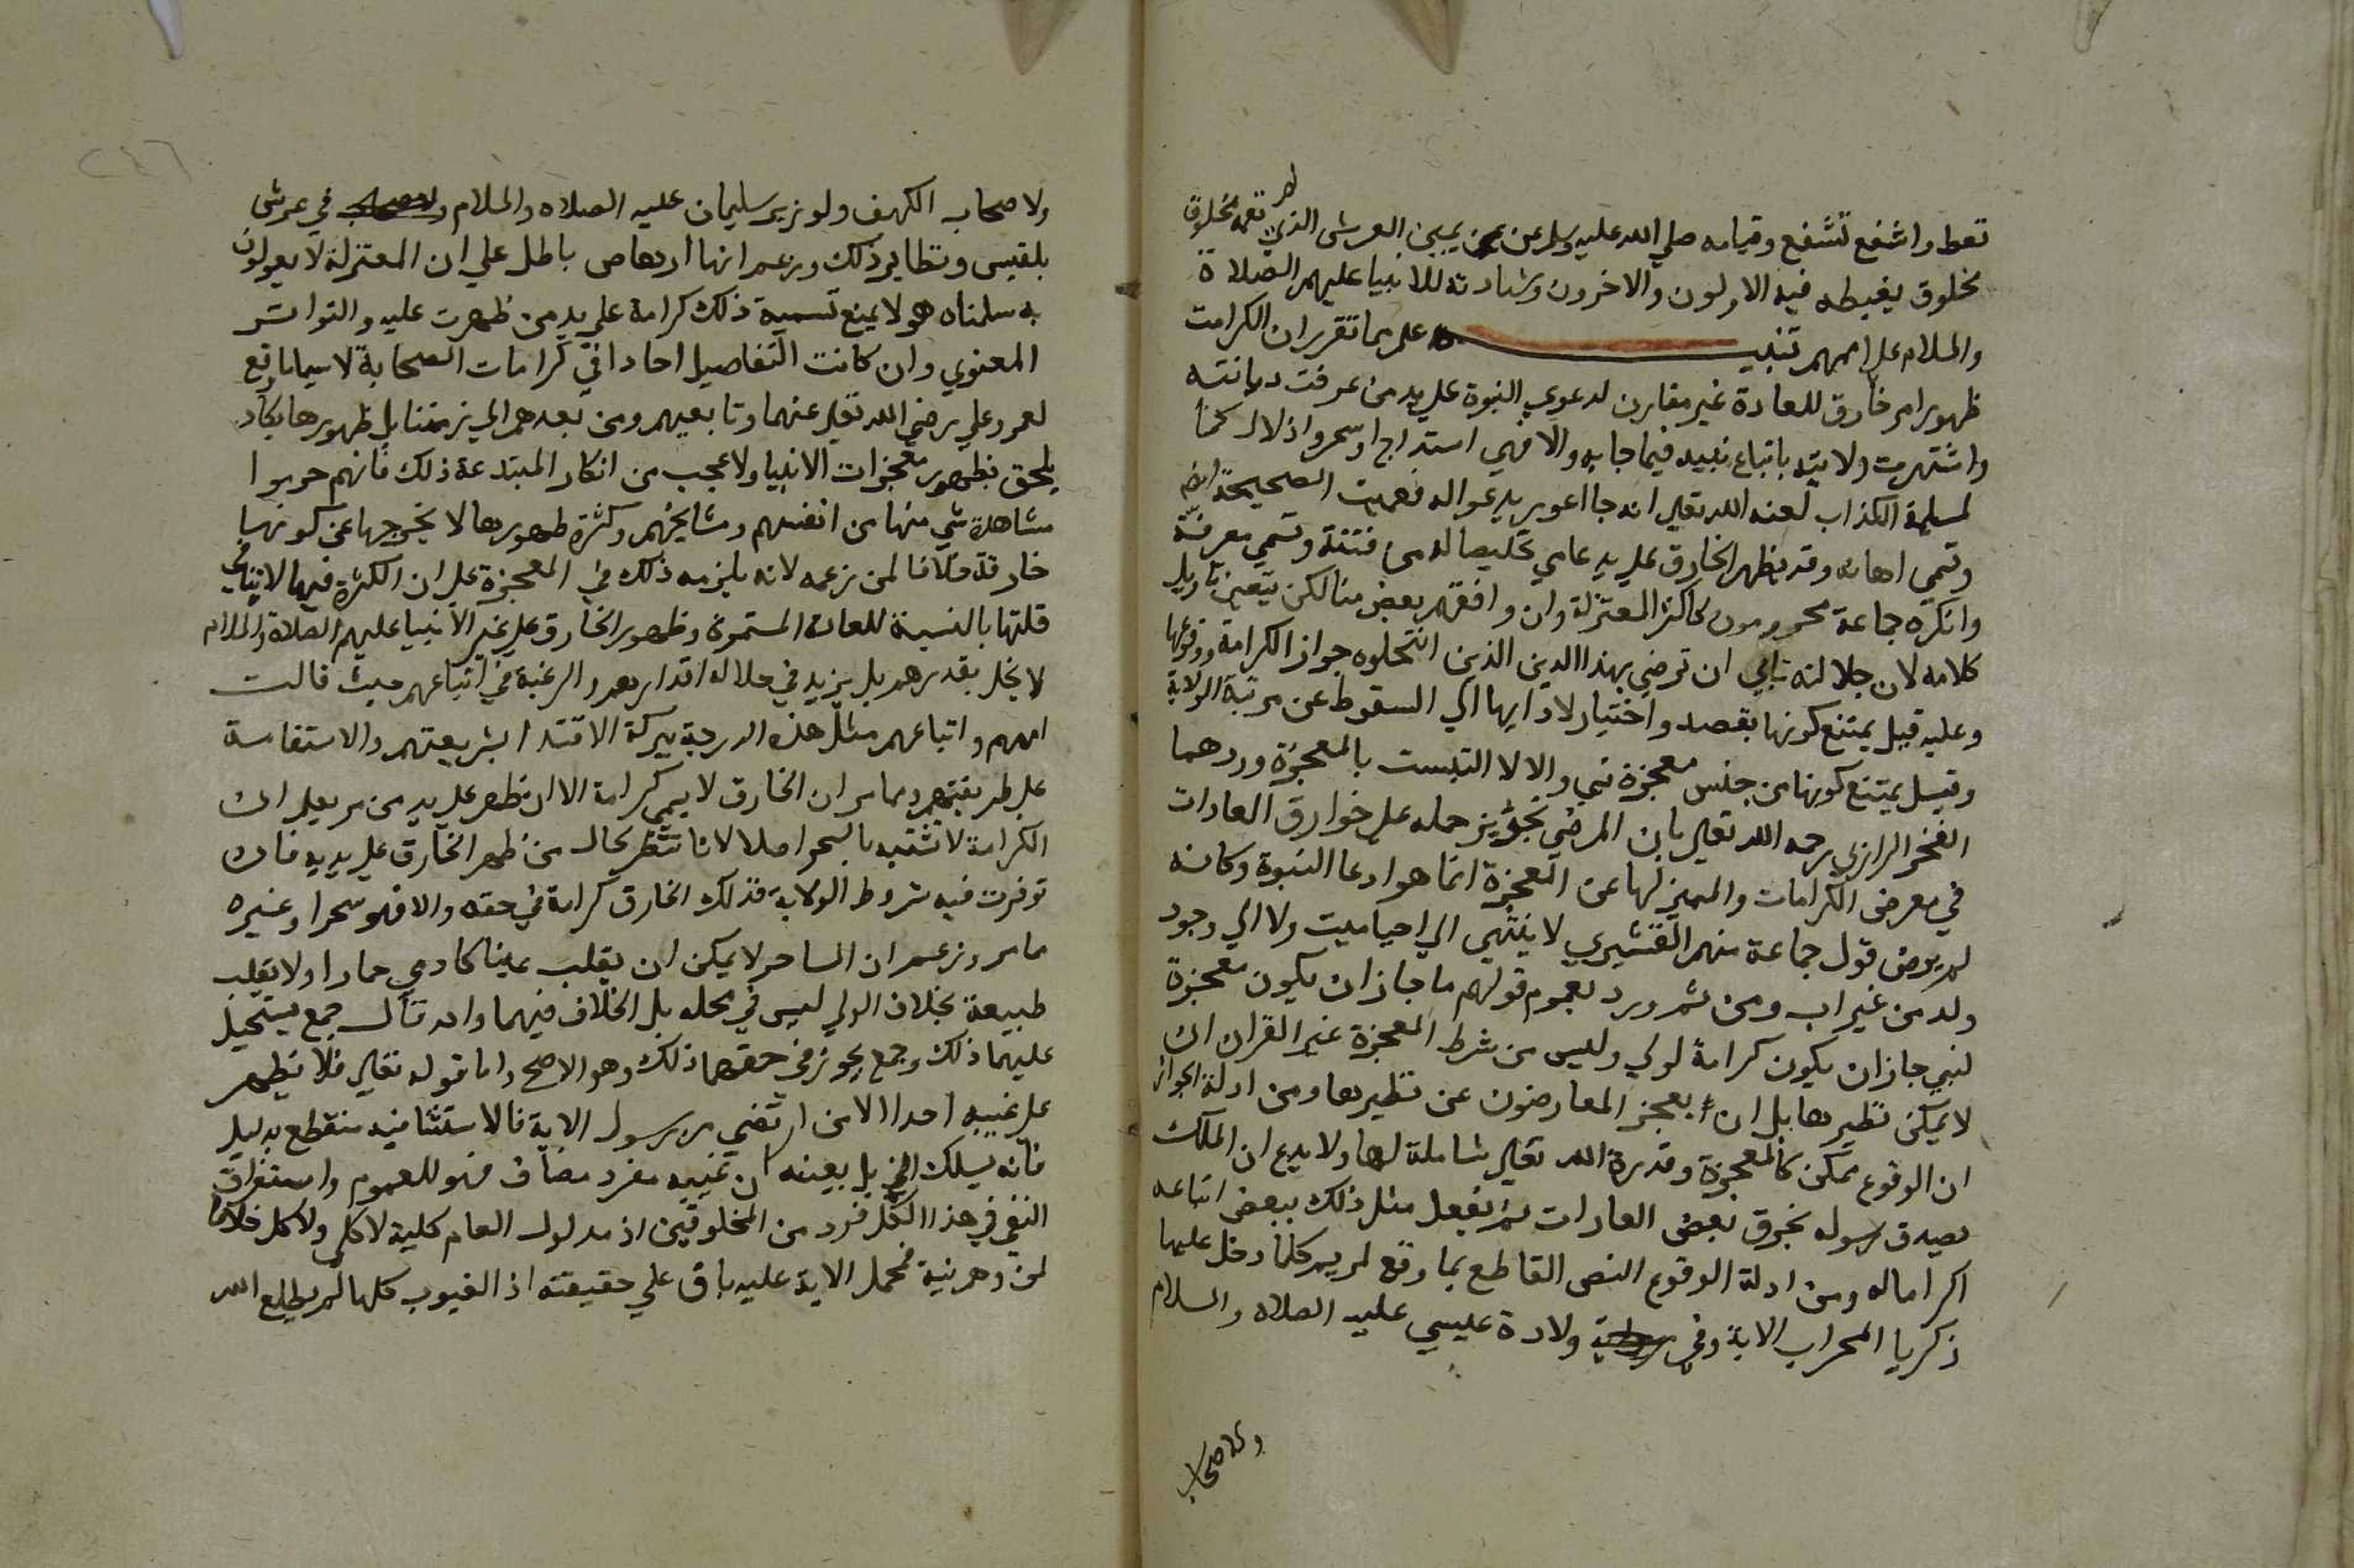 تعط واشفع تشفع وقيامه صلي الله عليه وسلم عن يمين العرش الذي لم تقمه مخلوق
مخلوق يغبطه فيه الاولون والاخرون وشهادته للانبيا عليهم الصلاة
والسلام علي اممهم تنبيه علم مما تقرر ان الكرامت
ظهور امر خارق للعادة غير مقارن لدعوي النبوة علي يد من عرفت ديانته
واشتهرت ولايته باتباع نبيه فيما جا به والا فهي استدراج او سحر واذلال كما
لمسيلمة الكذاب لعنه الله تعالي انه جا اعور يدعو اله فعميت الصحيحة ايضا
وتسمي اهانة وقد يظهر الخارق علي يد عامي تخليصا له من فتنة وتسمي معرفة
وانكره جماعة محرومون كاكثر المعتزلة وان وافقهم بعض منا لكن يتعين تاويل
كلامه لان جلالته تابي ان ترضي بهذا الدين الذين انتحلوه جواز الكرامة ووقوعها
وعليه قيل يمتنع كونها بقصد واختيار لادايها الي السقوط عن مرتبة الولاية
وقيل يمتنع كونها من جنس معجزة نبي والا لالتبست بالمعجزة وردهما
الفخر الرازي رحمه الله تعالي بان المرضي تجويز جمله علي خوارق العادات
في معرض الكرامات والمميز لها عن المعجزة انما هو ادعا النبوة وكانه
لم يرض قول جماعة منهم القشيري لا ينتهي الي احيا ميت ولا الي وجود
ولد من غير اب ومن ثم ورد بعموم قولهم ما جاز ان يكون معجزة
لنبي جاز ان يكون كرامة لولي وليس من شرط المعجزة غير القران ان
لا يمكن نظيرها بل ان يعجز المعارضون عن نظيرها ومن ادلة الجواز
ان الوقوع ممكن كالمعجزة وقدرة الله تعالي شاملة لها ولا بدع ان الملك
يصدق رسوله بخرق بعض العادات ثم يفعل مثل ذلك ببعض اتباعه
اكراما له ومن ادلة الوقوع النص القاطع بما وقع لمريم كلما دخل عليها
زكريا المحراب الاية وفي ولادة عيسي عليه الصلاة والسلام
ولاصحاب
ولاصحاب الكهف ولوزير سليمان عليه الصلاه والسلام في عرش
بلقيس ونظاير ذلك وزعم انها ارهاص باطل علي ان المعتزلة لا يقولون
به سلمناه هو لا يمنع تسمية ذلك كرامة علي يد من ظهرت عليه والتواتر
المعنوي وان كانت التفاصيل احادا في كرامات الصحابة لا سيما ما وقع
لعمر وعلي رضي الله تعالي عنهما وتابعيهم ومن بعدهم الي زمننا بل ظهورها يكاد
يلحق بظهور معجزات الانبيا ولا عجب من انكار المبتدعة ذلك فانهم حرموا
مشاهدة شي منها من انفسهم ومشايخهم وكثرة ظهورها لا يخرجها عن كونها
خارقة خلافا لمن زعمه لانه يلزمه ذلك في المعجزة علي ان الكثرة فيها لا تنافي
قلتها بالنسبة للعادة المستمرة وظهور الخارق علي غير الانبيا عليهم الصلاة والسلام
لا يخل بقدرهم بل يزيد في جلالة اقدارهم والرغبة في اتباعهم حيث نالت
اممهم واتباعهم مثل هذه الدرجة ببركة الاقتدا بشريعتهم والاستقامة
علي طريقتهم ومما مر ان الخارق لا يسمي كرامة الا ان ظهر علي يد من مر يعلم ان
الكرامة لا تشتبه بالسحر اصلا لانا ننظر بحال من ظهر الخارق علي يديه فان
توفرت فيه شروط الولاية فذلك الخارق كرامة في حقه والا فهو سحر او غيره
مما مر وزعم ان الساحر لا يمكن ان يقلب عينا كادمي حمارا ولا يقلب
طبيعة بخلاف الولي ليس في محله بل الخلاف فيهما واحد قال جمع يستحيل
عليهما ذلك وجمع يجوز في حقهما ذلك وهو الاصح واما قوله تعالي فلا يظهر
علي غيبه احدا الا من ارتضي من رسول الاية فالاستثنا فيه منقطع بدليل
فانه يسلك الخ بل بعينه ان غيبه مفرد مضاف فهو للعموم واستغراق
النفي في هذا الكل فرد من المخلوقين اذ مدلول العام كلية لا كلي ولا كل خلافا
لمن وهم فيه فحمل الاية عليه باق علي حقيقته اذ الغيوب كلها لم يطلع الله